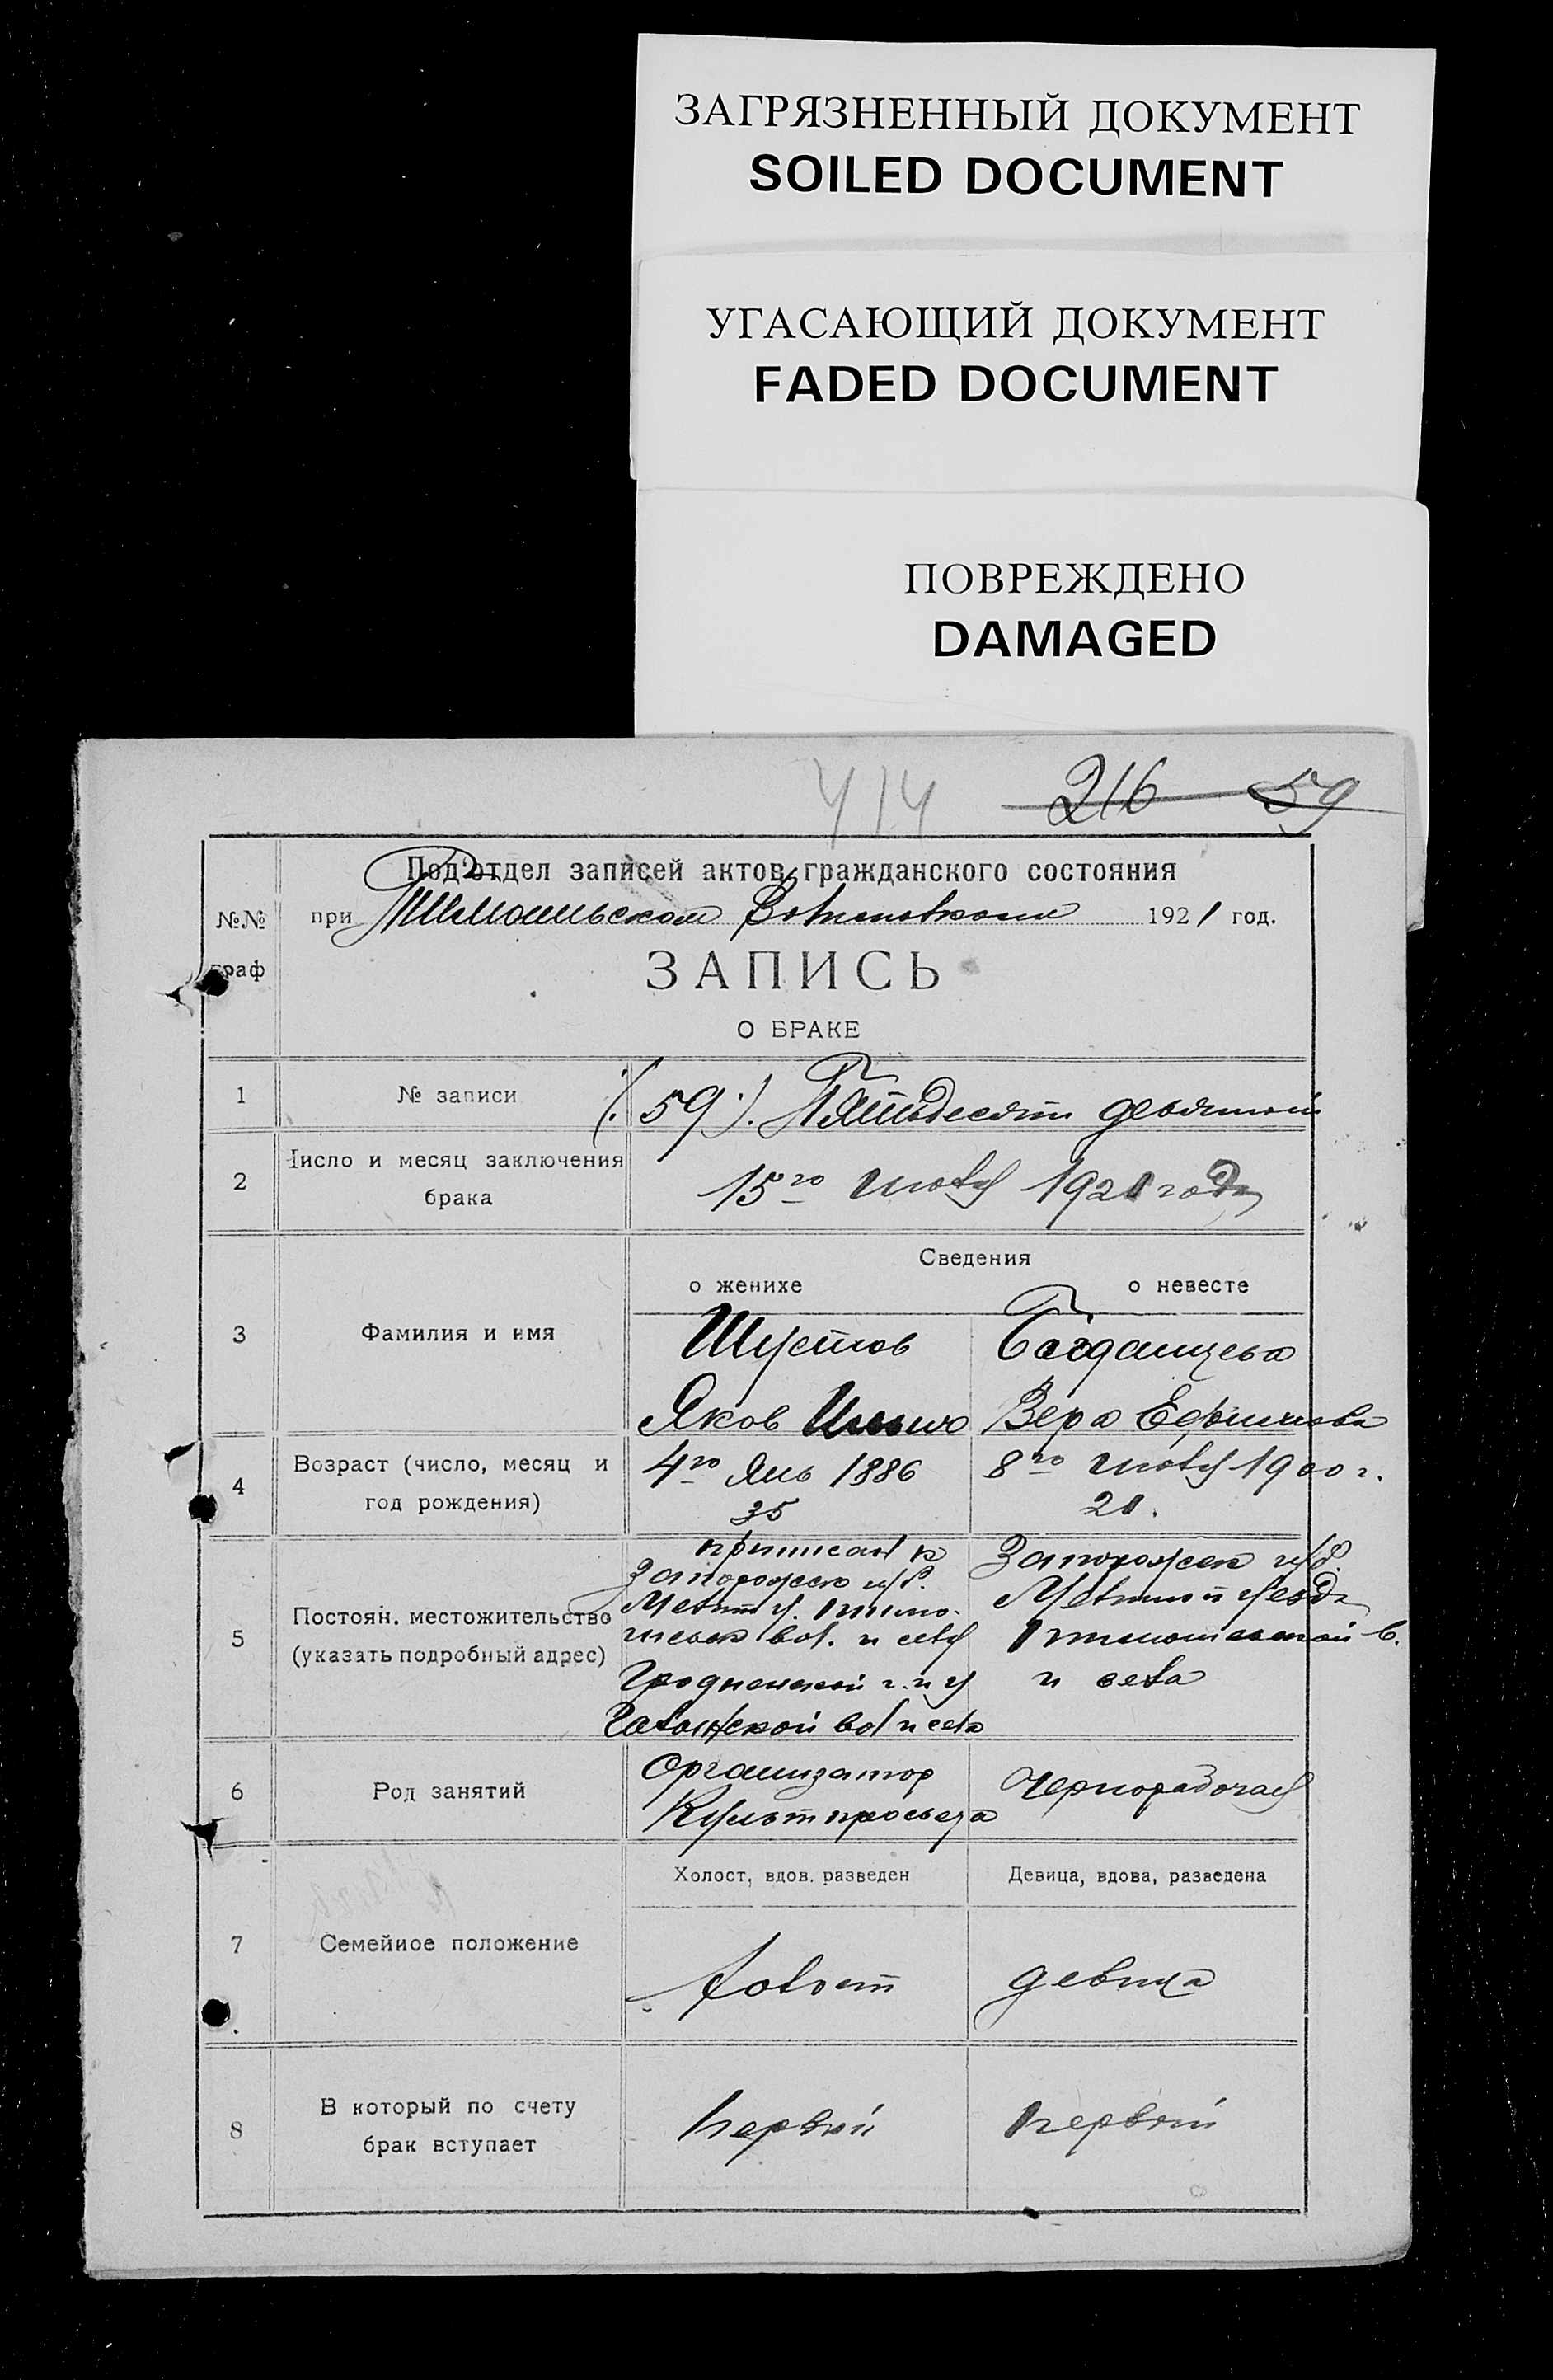 ЗАГРЯЗНЕННЫЙ ДОКУМЕНТ
SOILED DOCUMENT
УГАСАЮЩИЙ ДОКУМЕНТ
FADED DOCUMENT
ПОВРЕЖДЕНО
DAMAGED
414 216 59
Под'отдел записей актов гражданского состояния
№№ граф
при 1921 год.
ЗАПИСЬ
О БРАКЕ
1 № записи (59). Пятьдесят девятый
2 Число и месяц заключения брака 15го июля 1921 года
Сведения
о женихе о невесте
3 Фамилия и имя Шустов Богданцева
Яков Вера Ефимовна
4 Возраст (число, месяц и год рождения) 4го Янв 1886 8го июля 1900 г.
35 21.
приписан к Запорожск губ.
Запорожск губ.
5 Постоян. местожительство
(указать подробный адрес)
вол. и села
Гродненской г. и у и села
вол и села
6 Род занятий Организатор Чернорабочая
Культпросвета
Холост, вдов. разведен Девица, вдова, разведена
7 Семейное положение холост девица
8 В который по счету
брак вступает первый первый